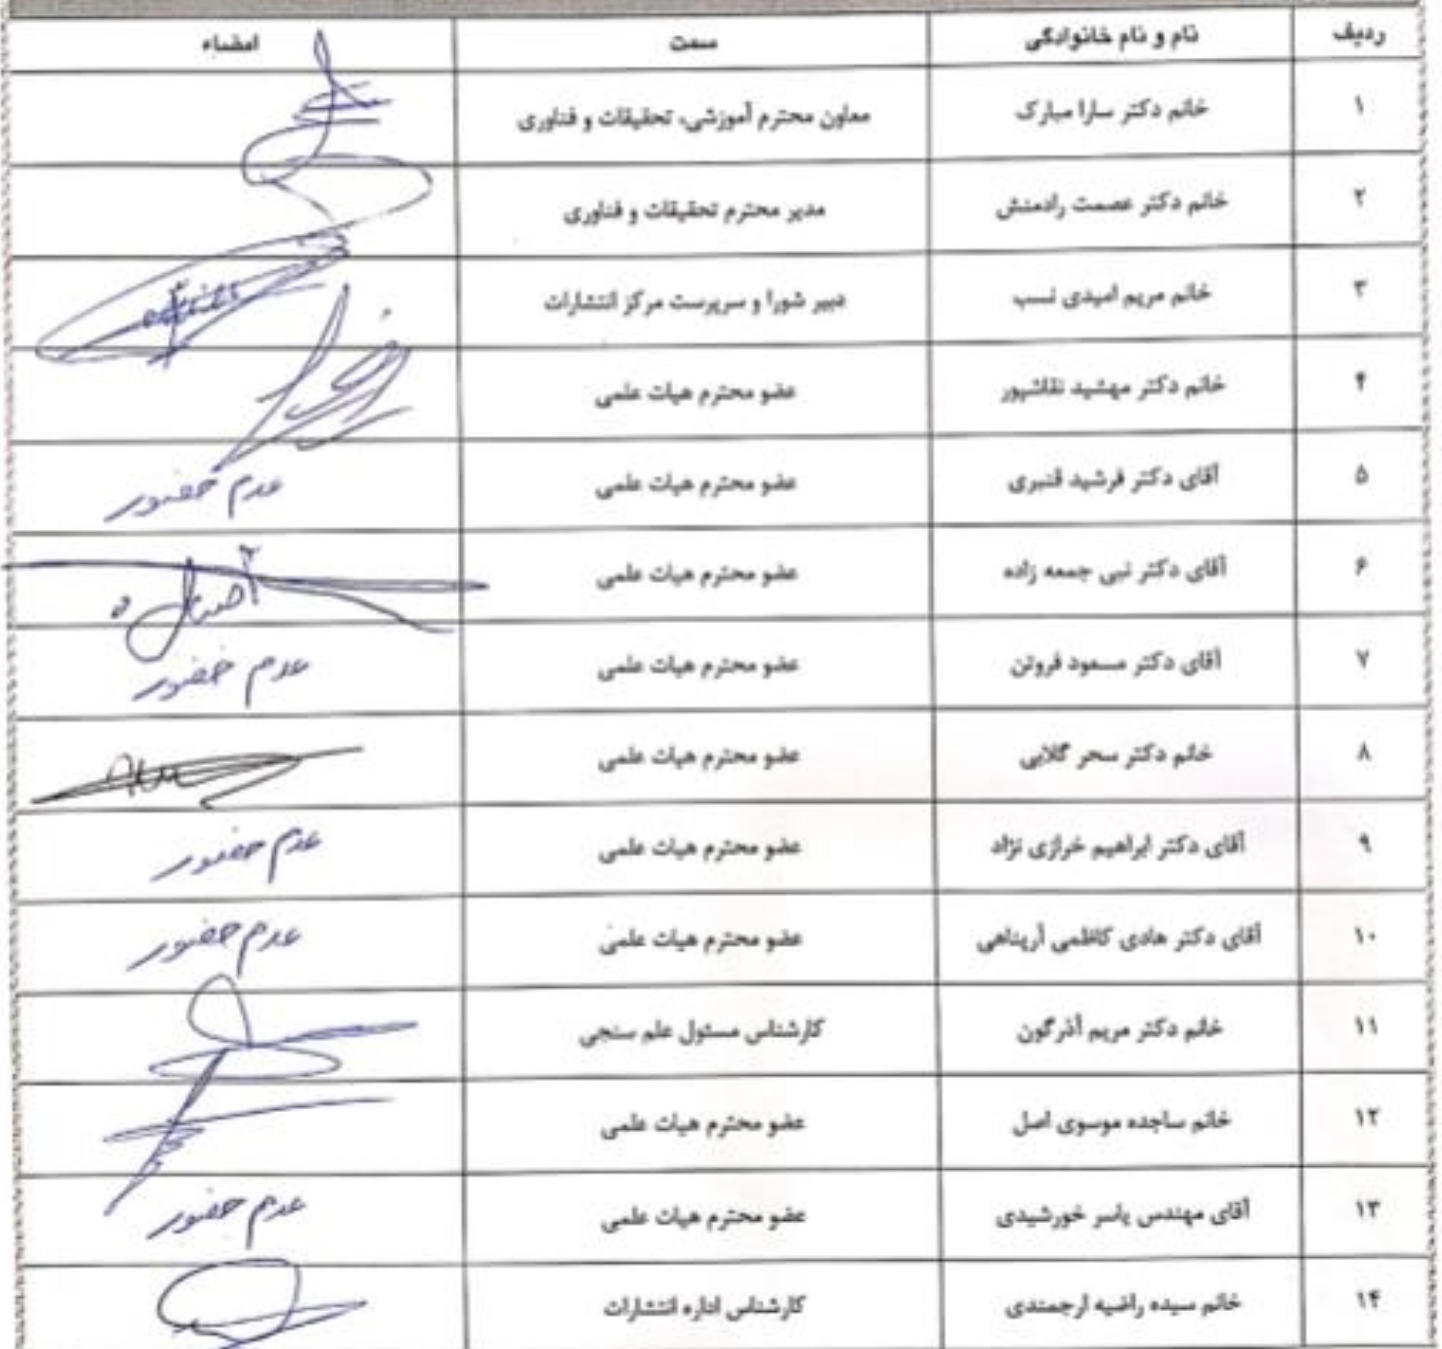 ردیف نام و نام خانوادگی سمت امضاء
۱ خانم دکتر سارا مبارک معاون محترم آموزشی، تحقیقات و فناوری
۲ خانم دکتر عصمت رادمنش مدیر محترم تحقیقات و فناوری
۳ خانم مریم امیدی نسب دبیر شورا و سرپرست مرکز انتشارات
۴ خانم دکتر مهشید نقاشپور عضو محترم هیات علمی
۵ آقای دکتر فرشید قنبری عضو محترم هیات علمی عدم حضور
۶ آقای دکتر نبی جمعه زاده عضو محترم هیات علمی
۷ آقای دکتر مسعود فروتن عضو محترم هیات علمی عدم حضور
۸ خانم دکتر سحر گلابی عضو محترم هیات علمی
۹ آقای دکتر ابراهیم خرازی نژاد عضو محترم هیات علمی عدم حضور
۱۰ آقای دکتر هادی کاظمی آرپناهی عضو محترم هیات علمی عدم حضور
۱۱ خانم دکتر مریم آذرگون کارشناس مسئول علم سنجی
۱۲ خانم ساجده موسوی اصل عضو محترم هیات علمی
۱۳ آقای مهندس یاسر خورشیدی عضو محترم هیات علمی عدم حضور
۱۴ خانم سیده راضیه ارجمندی کارشناس اداره انتشارات